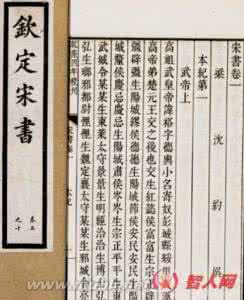 宋書卷一
梁沈約撰
本紀第一
武帝上
高祖武皇帝諱裕字德輿小名寄奴彭城縣綏里人漢
高帝弟楚元王交之後也交生紅懿侯富富生宗正辟
彊辟彊生陽城繆侯德德生陽城節侯安民安民生陽
城釐侯慶忌慶忌生陽城肅侯岑岑生宗正平平生東
武城令某某生東萊太守景景生明經洽洽生博士弘
弘生琅邪都尉悝悝生魏定襄太守某某生邪城令亮
乾隆四年校刊
宋書卷一 本紀 一
欽定宋書
卷五
之十
智人网